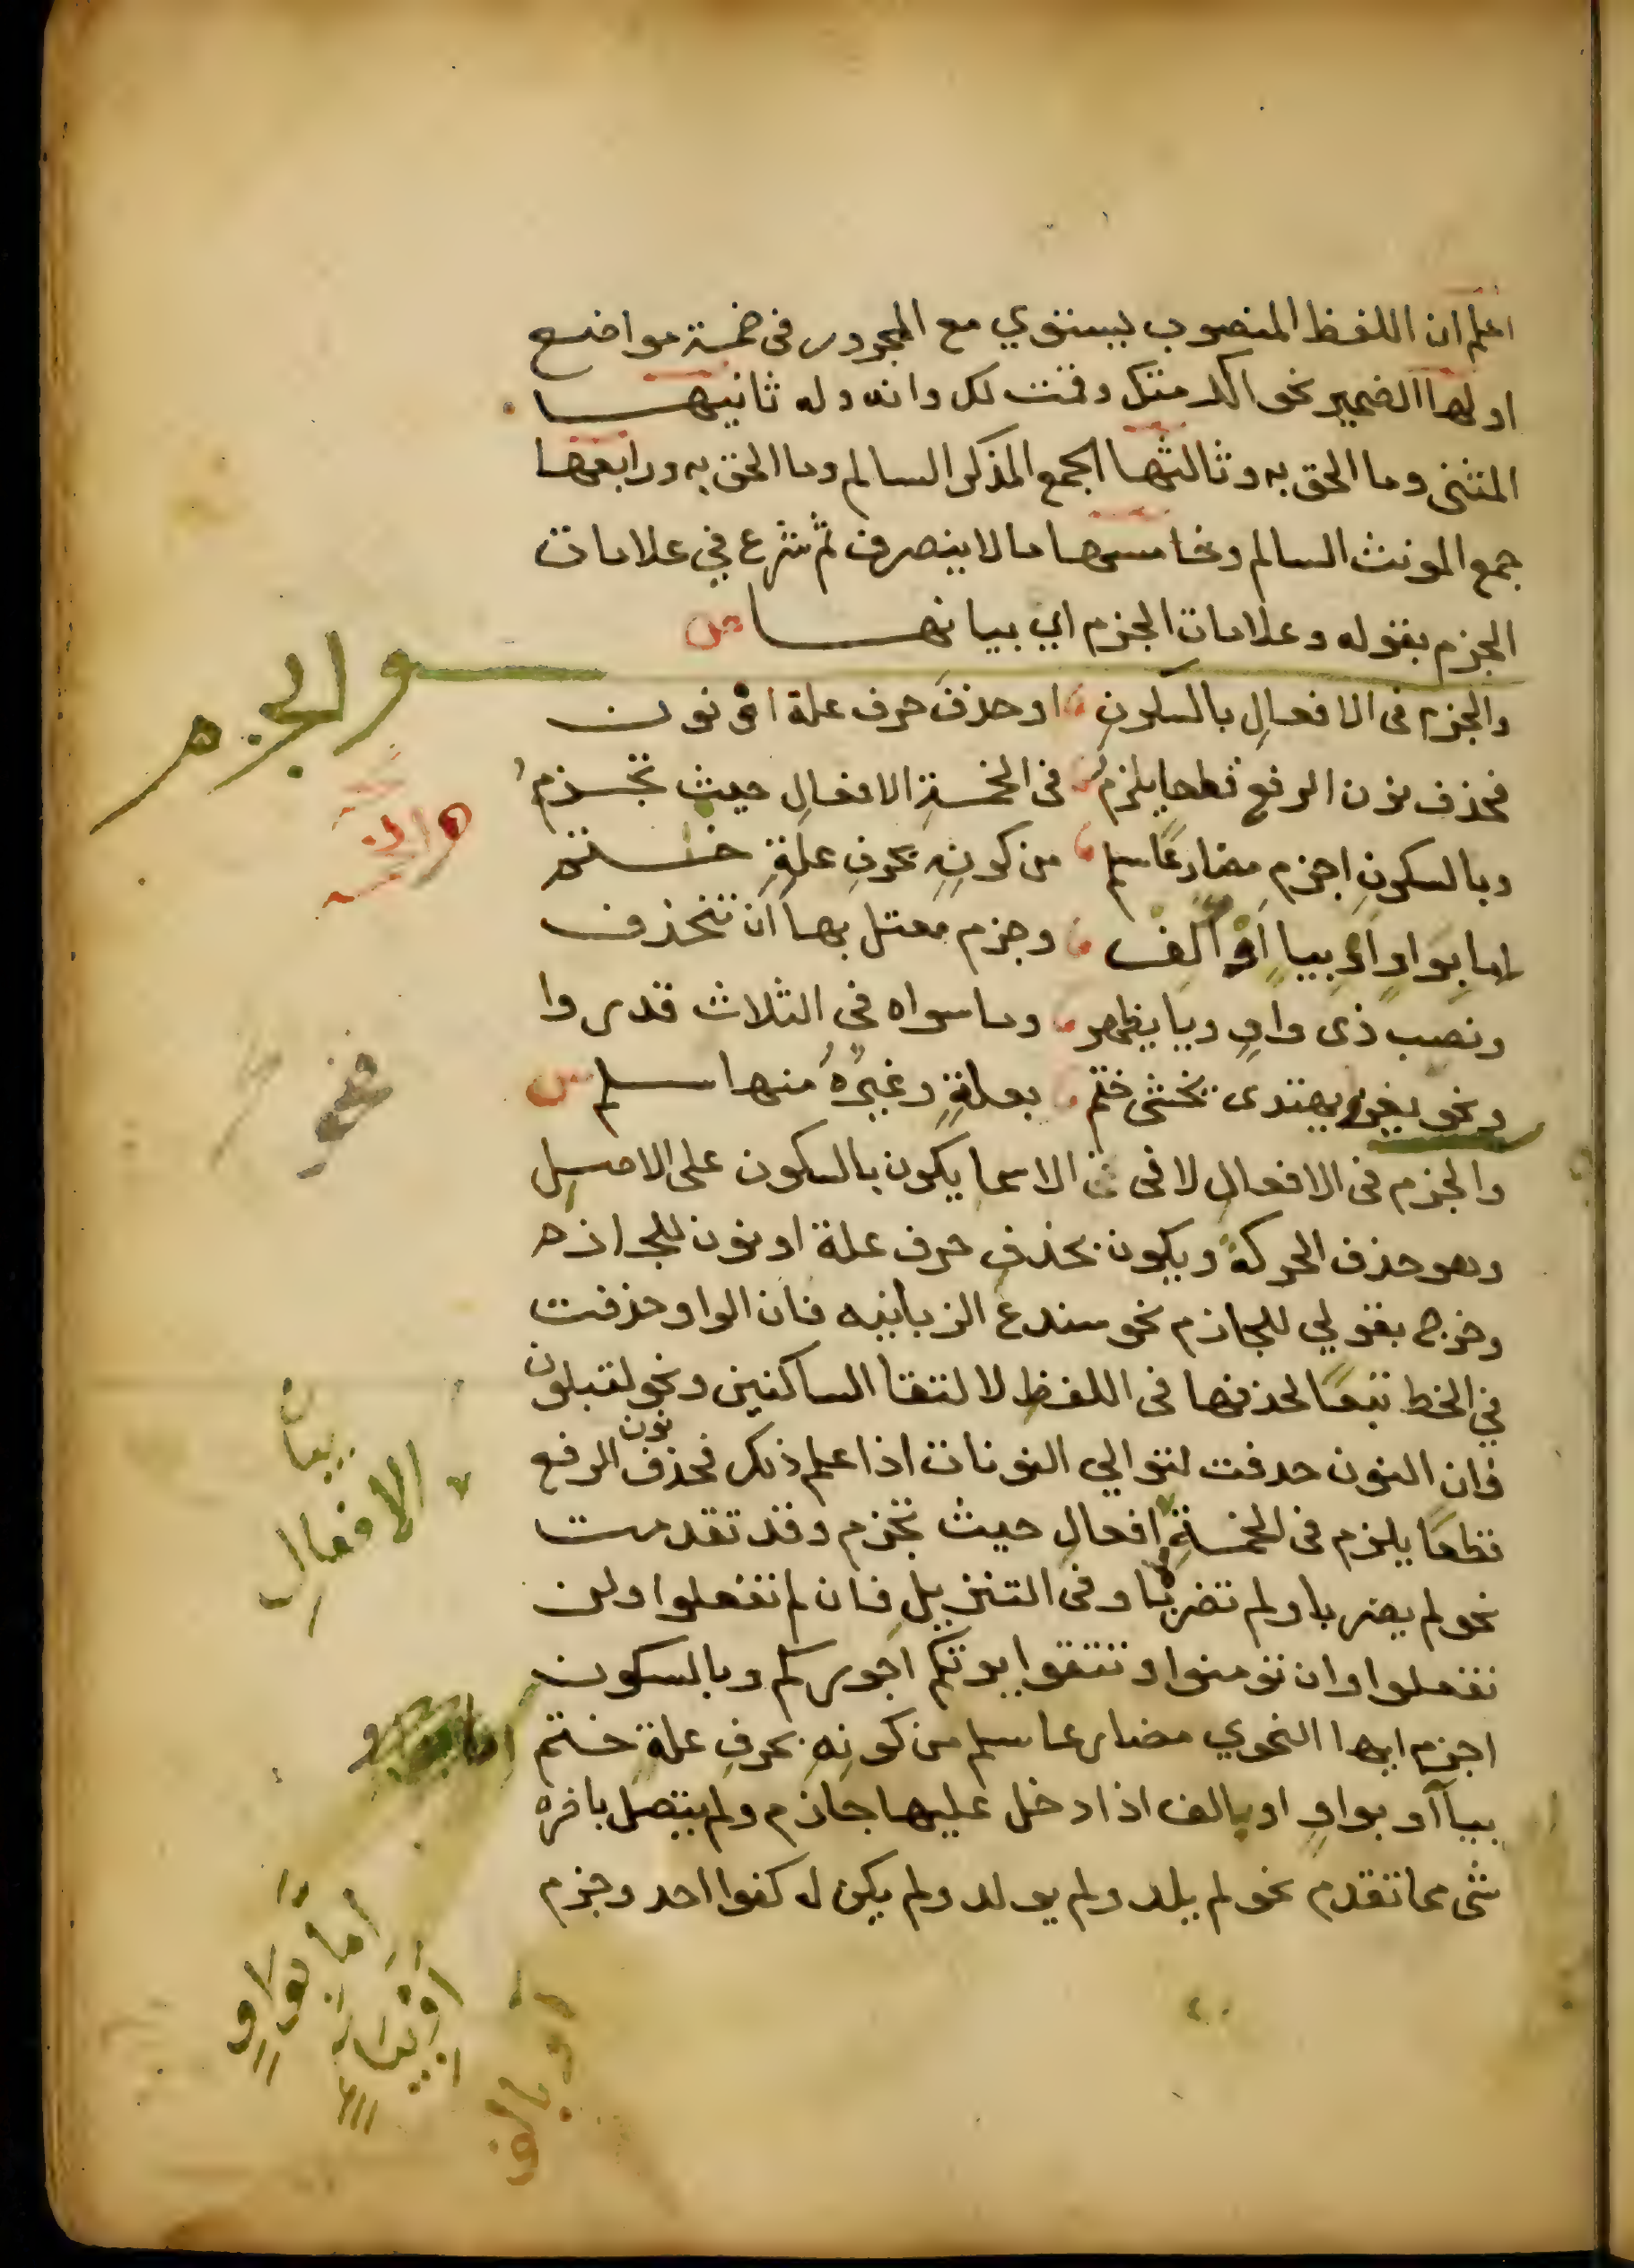 اعلم ان اللفظ المنصوب يستوي مع المجرور في خمسة مواضع
اولها الضمير نحو اكرمتك وقمت لك وانه وله ثانيها
المثنى وما الحق به وثالثها الجمع المذكر السالم وما الحق به ورابعها
جمع المونث السالم وخامسها ما لا ينصرف ثم شرع في علامات
الجزم بقوله وعلامات الجزم اي بيانها ص
والجزم في الافعالِ بالسكونِ او حذفَ حرف علة او نون
فحذف نون الرفع قطعا يلزم في الخمسةِ الافعالِ حيث تجزم
وبالسكونِ اجزم مضارعًا سلم من كونِهِ بحرفِ علةٍ ختم
اما بواوٍ او بيا او الف وجزم معتل بها ان تنحذف
ونصب ذى واوٍ ويا يظهر وما سواه في الثلاث قدروا
ونحو يغزو يهتدى يخشى ختم بعلةٍ وغيرُهُ منها سلم ش
والجزم في الافعالِ لا في الاسما يكون بالسكون على الاصل
وهو حذف الحركة ويكون بحذف حرف علة او نون للجازم
وخرج بقولي للجازم نحو سندع الزبانيه فان الواو حذفت
في الخط تبعًا لحذفها في اللفظ لالتقا الساكنين ونحو لتبلون
فان النون حدفت لتوالي النونات اذا علم ذلك فحذف نون الرفع
قطعًا يلزم في الخمسةِ افعالِ حيث تجزم وقد تقدمت
نحو لم يضربا ولم تضربا وفي التنزيل فان لم تفعلوا ولن
تفعلوا وان تومنوا وتتقوا يوتكم اجوركم وبالسكون
اجزم ايها النحوي مضارعا سلم من كونِهِ بحرفِ علةٍ ختم
بياآ او بواوٍ او بالف اذا دخل عليها جازم ولم يتصل باخره
شى مما تقدم نحو لم يلد ولم يولد ولم يكن له كفوا احد وجزم
بيان
الافعالِ
اما بواوٍ
او بيا
او بالف